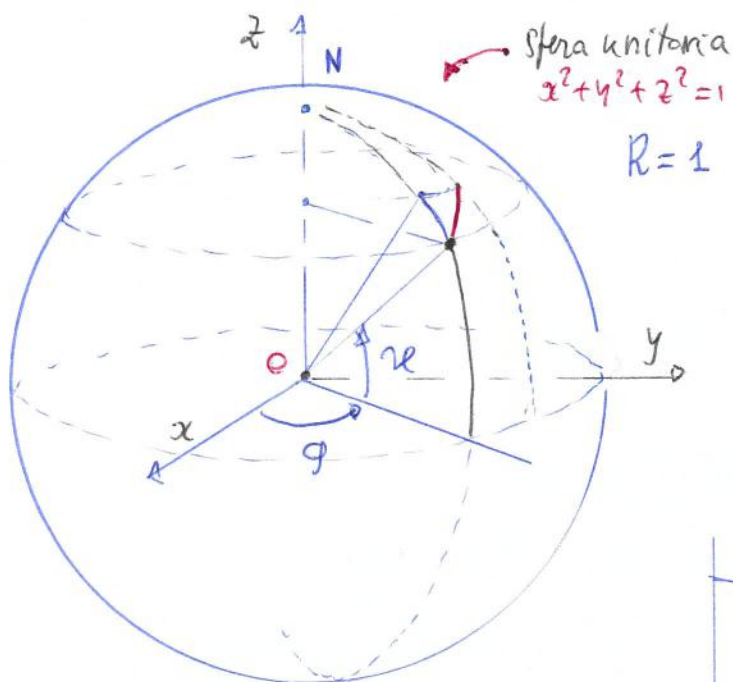 Z
N
sfera unitaria
x²+y²+z²=1
R=1
y
O
ϑ
x
φ